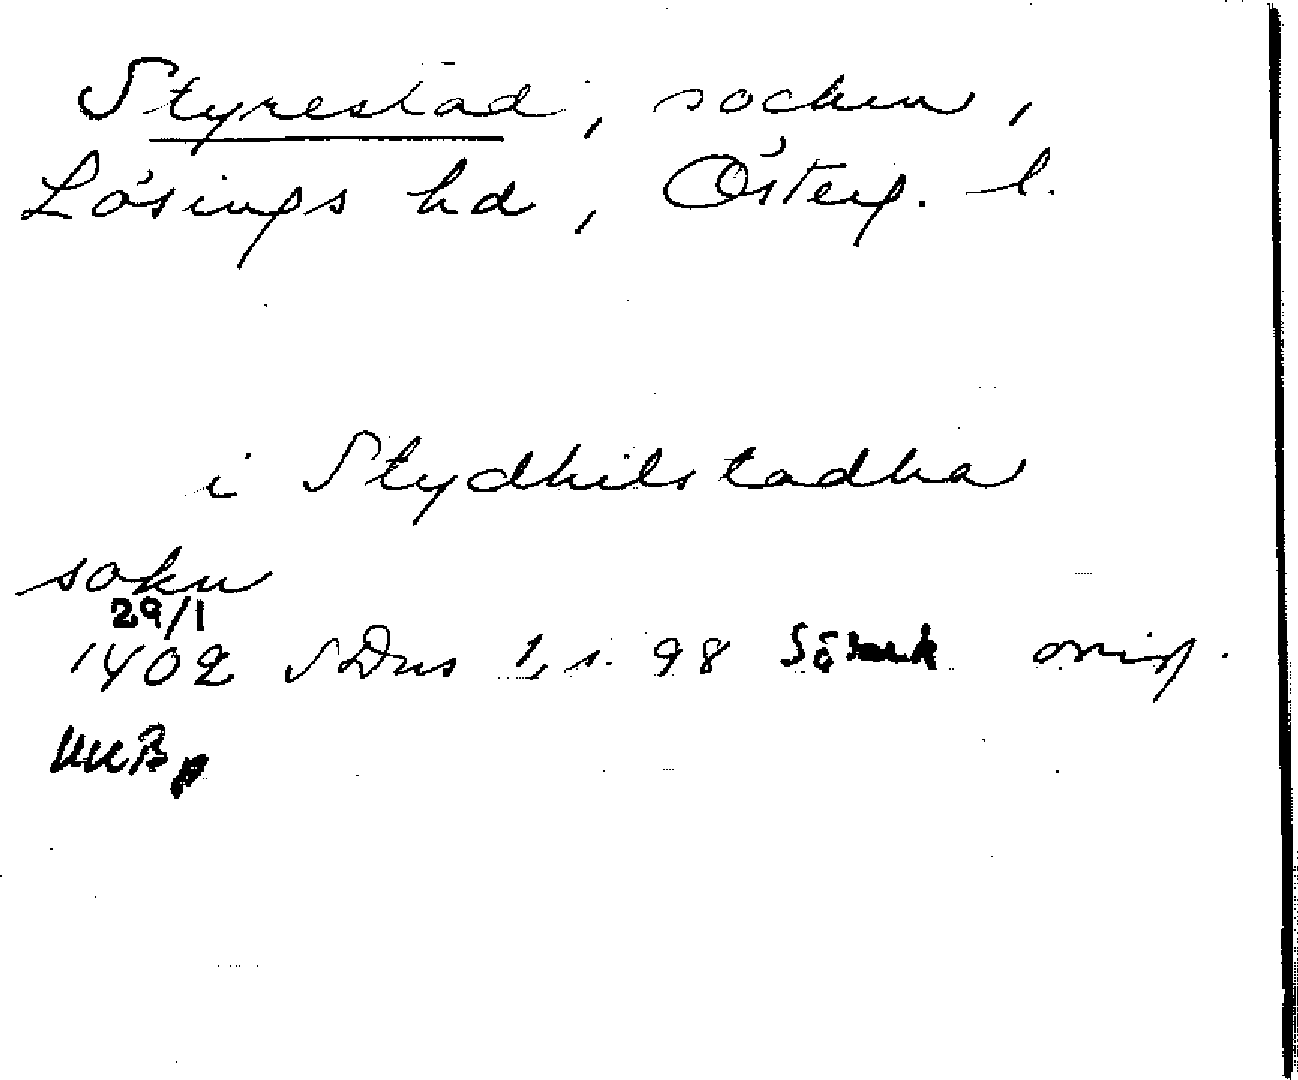 Styrestad, socken,
Lösings hd, Österg. l.
i Stydhilstadha
sokn
29/1
1402 SDns 1, s. 98 orig.